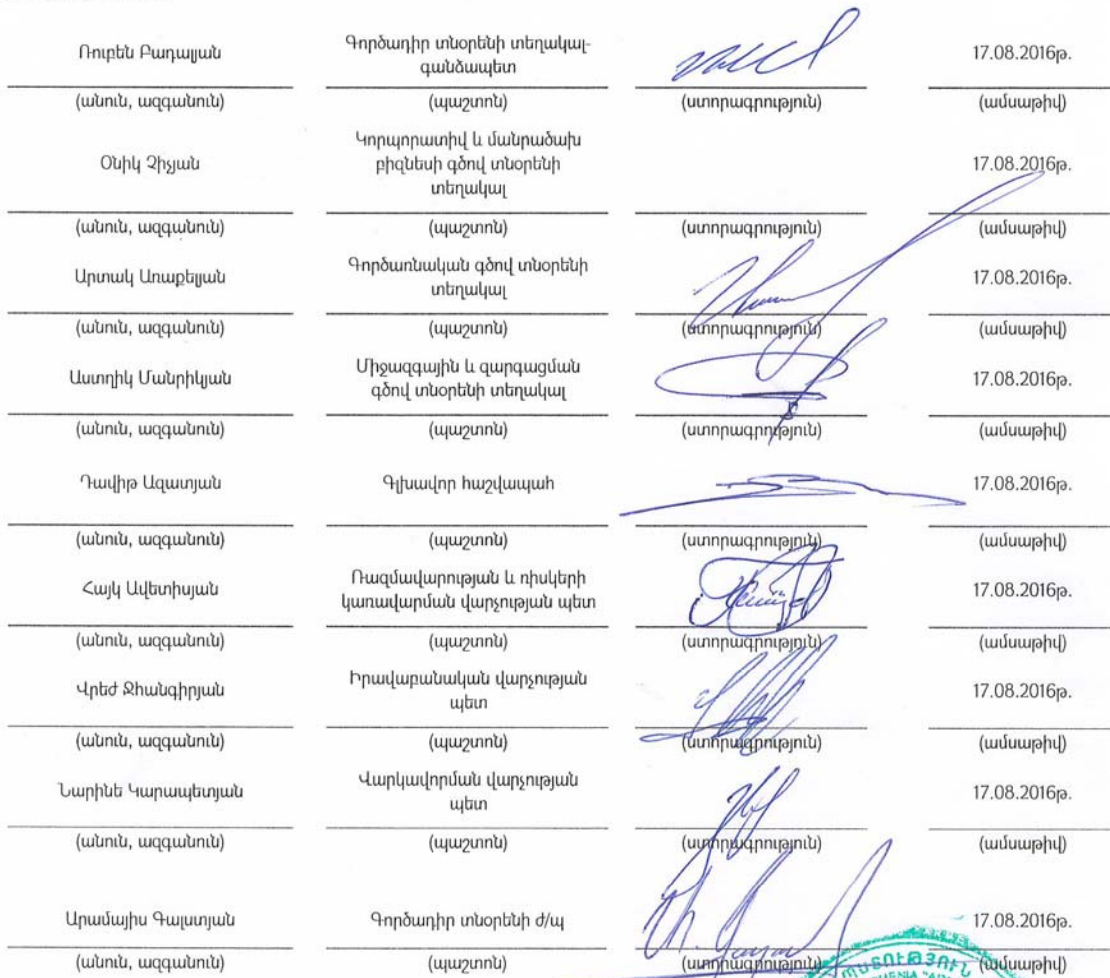 Ռուբեն Բադալյան Գործադիր տնօրենի տեղակալ- 17.08.2016թ.
գանձապետ
(անուն, ազգանուն) (պաշտոն) (ստորագրություն) (ամսաթիվ)
Կորպորատիվ և մանրածախ
Օնիկ Չիչյան բիզնեսի գծով տնօրենի 17.08.2016թ.
տեղակալ
(անուն, ազգանուն) (պաշտոն) (ստորագրություն) (ամսաթիվ)
Արտակ Առաքելյան Գործառնական գծով տնօրենի 17.08.2016թ.
տեղակալ
(անուն, ազգանուն) (պաշտոն) (ստորագրություն) (ամսաթիվ)
Աստղիկ Մանրիկյան Միջազգային և զարգացման 17.08.2016թ.
գծով տնօրենի տեղակալ
(անուն, ազգանուն) (պաշտոն) (ստորագրություն) (ամսաթիվ)
Դավիթ Ազատյան Գլխավոր հաշվապահ 17.08.2016թ.
(անուն, ազգանուն) (պաշտոն) (ստորագրություն) (ամսաթիվ)
Հայկ Ավետիսյան Ռազմավարության և ռիսկերի 17.08.2016թ.
կառավարման վարչության պետ
(անուն, ազգանուն) (պաշտոն) (ստորագրություն) (ամսաթիվ)
Վրեժ Ջհանգիրյան Իրավաբանական վարչության 17.08.2016թ.
պետ
(անուն, ազգանուն) (պաշտոն) (ստորագրություն) (ամսաթիվ)
Նարինե Կարապետյան Վարկավորման վարչության 17.08.2016թ.
պետ
(անուն, ազգանուն) (պաշտոն) (ստորագրություն) (ամսաթիվ)
Արամայիս Գալստյան Գործադիր տնօրենի ժ/պ 17.08.2016թ.
(անուն, ազգանուն) (պաշտոն) (ստորագրություն) (ամսաթիվ)